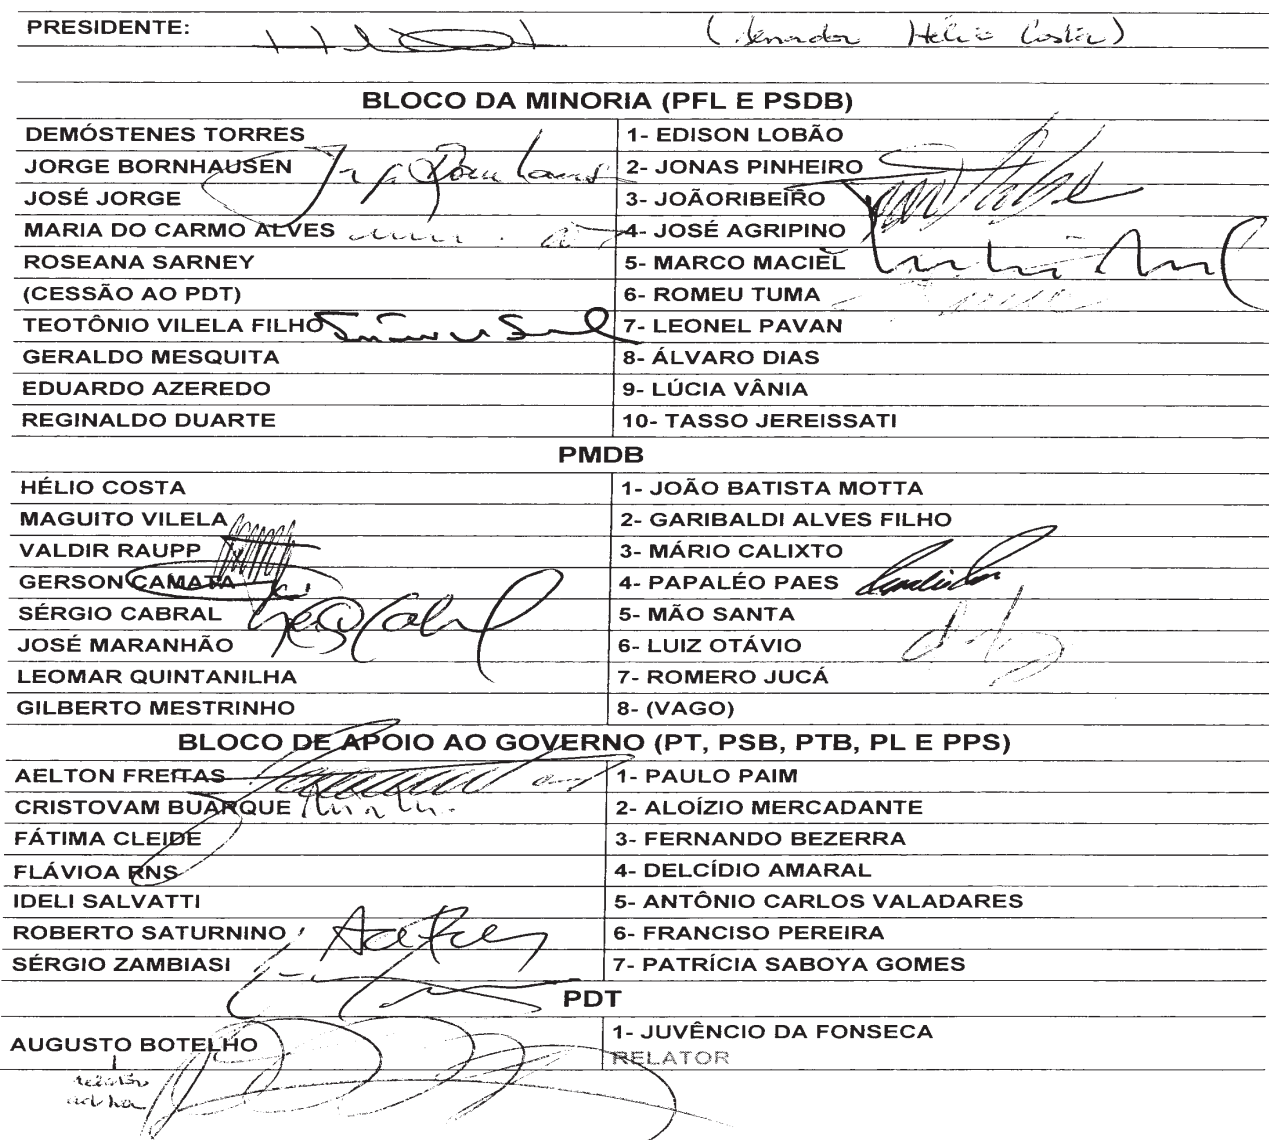 PRESIDENTE: (Senador Hélio Costa)
BLOCO DA MINORIA (PFL E PSDB)
DEMÓSTENES TORRES 1- EDISON LOBÃO
JORGE BORNHAUSEN 2- JONAS PINHEIRO
JOSÉ JORGE 3- JOÃORIBEIRO
MARIA DO CARMO ALVES 4- JOSÉ AGRIPINO
ROSEANA SARNEY 5- MARCO MACIEL
(CESSÃO AO PDT) 6- ROMEU TUMA
TEOTÔNIO VILELA FILHO 7- LEONEL PAVAN
GERALDO MESQUITA 8- ÁLVARO DIAS
EDUARDO AZEREDO 9- LÚCIA VÂNIA
REGINALDO DUARTE 10- TASSO JEREISSATI
PMDB
HÉLIO COSTA 1- JOÃO BATISTA MOTTA
MAGUITO VILELA 2- GARIBALDI ALVES FILHO
VALDIR RAUPP 3- MÁRIO CALIXTO
GERSON CAMATA 4- PAPALÉO PAES
SÉRGIO CABRAL 5- MÃO SANTA
JOSÉ MARANHÃO 6- LUIZ OTÁVIO
LEOMAR QUINTANILHA 7- ROMERO JUCÁ
GILBERTO MESTRINHO 8- (VAGO)
BLOCO DE APOIO AO GOVERNO (PT, PSB, PTB, PL E PPS)
AELTON FREITAS 1- PAULO PAIM
CRISTOVAM BUARQUE 2- ALOÍZIO MERCADANTE
FÁTIMA CLEIDE 3- FERNANDO BEZERRA
FLÁVIOA RNS 4- DELCÍDIO AMARAL
IDELI SALVATTI 5- ANTÔNIO CARLOS VALADARES
ROBERTO SATURNINO 6- FRANCISO PEREIRA
SÉRGIO ZAMBIASI 7- PATRÍCIA SABOYA GOMES
PDT
AUGUSTO BOTELHO 1- JUVÊNCIO DA FONSECA
RELATOR
relator
ad hoc